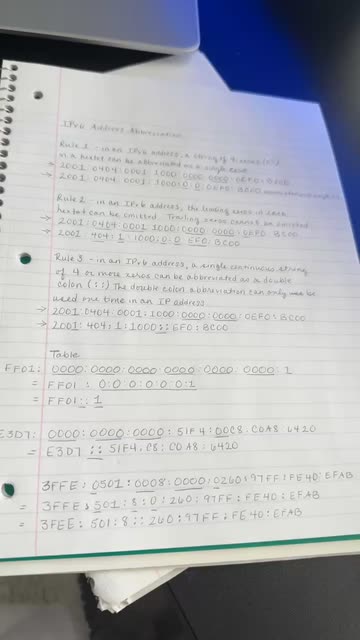 IPv6 Address Abbreviation
Rule 1 - in an IPv6 address, a string of 4 zeros (0's)
in a hextet can be abbreviated as a single zero.
→ 2001:0404:0001:1000:0000:0000:0EF0:BC00
→ 2001:0404:0001:1000:0:0:0EF0:BC00
Rule 2 - in an IPv6 address, the leading zeros in each
hextet can be omitted. Trailing zeros cannot be omitted
→ 2001:0404:0001:1000:0000:0000:0EF0:BC00
→ 2001:404:1:1000:0:0:EF0:BC00
Rule 3 - in an IPv6 address, a single continuous string
of 4 or more zeros can be abbreviated as a double
colon (::) The double colon abbreviation can only be
used one time in an IP address
→ 2001:0404:0001:1000:0000:0000:0EF0:BC00
→ 2001:404:1:1000::EF0:BC00
Table
FF01:0000:0000:0000:0000:0000:0000:1
= FF01:0:0:0:0:0:0:1
= FF01::1
E3D7:0000:0000:0000:51F4:00C8:C0A8:6420
= E3D7::51F4:C8:C0A8:6420
3FFE:0501:0008:0000:0260:97FF:FE40:EFAB
= 3FFE:501:8:0:260:97FF:FE40:EFAB
= 3FEE:501:8::260:97FF:FE40:EFAB